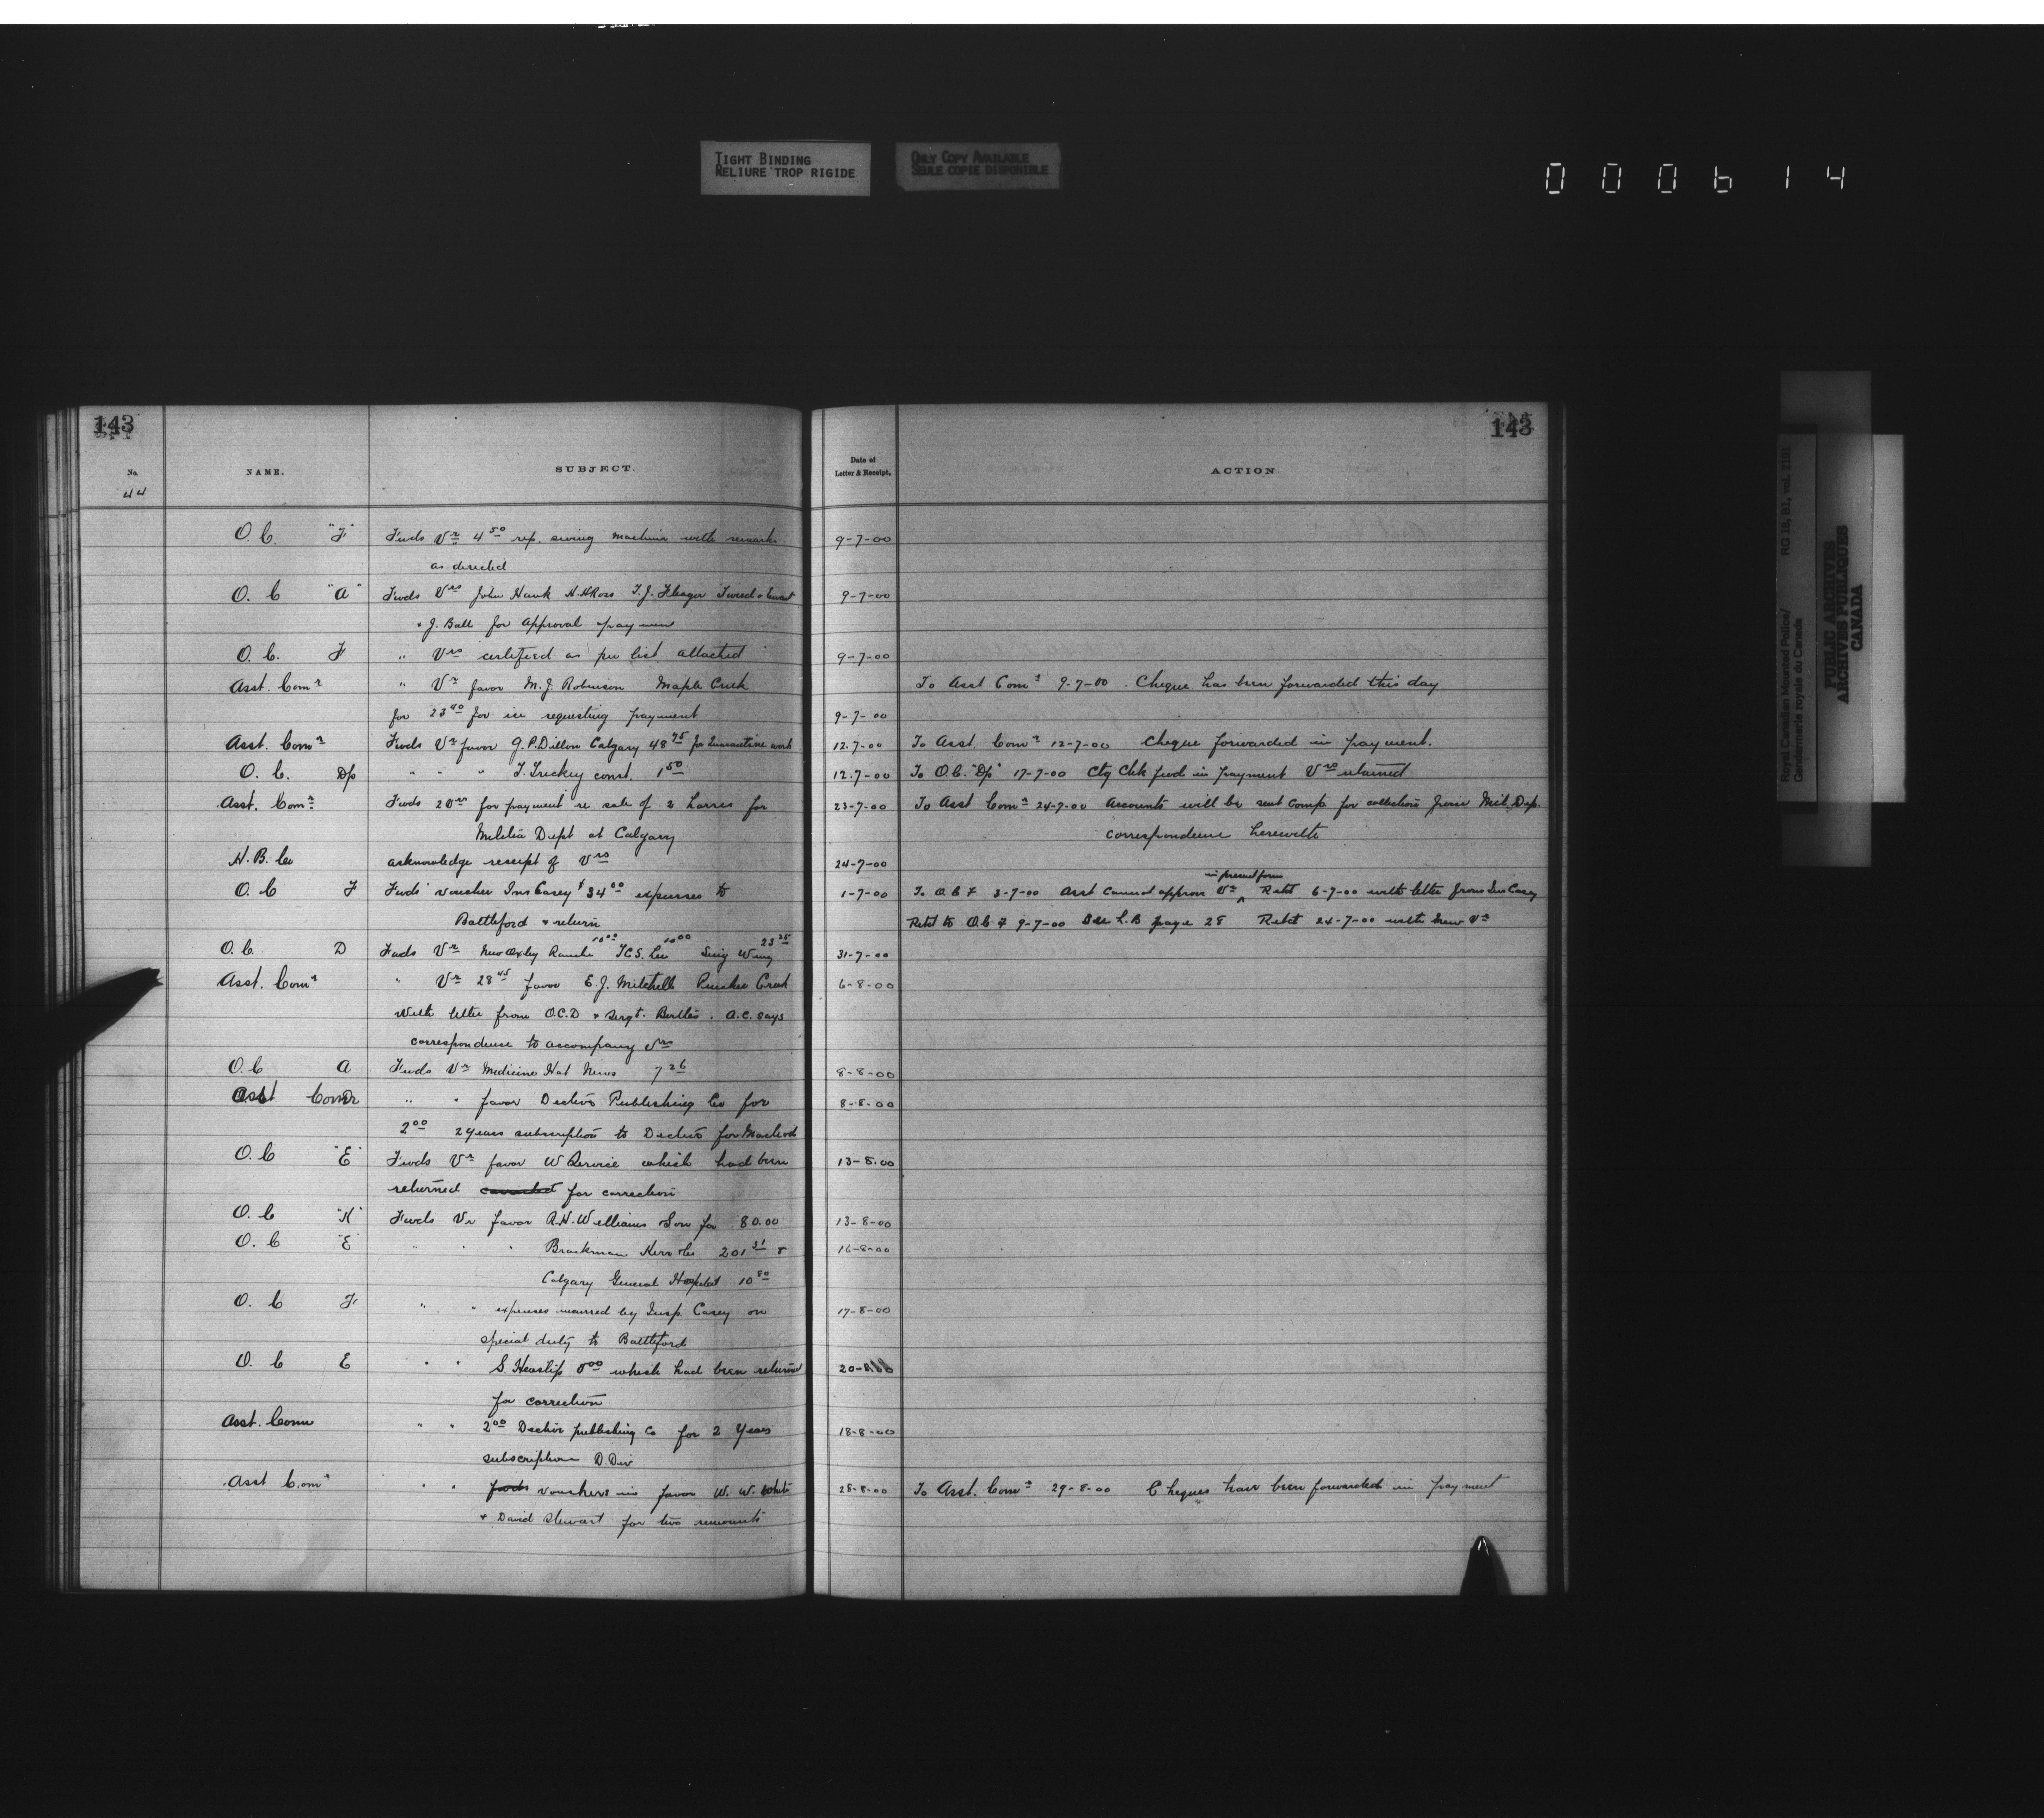 TIGHT BINDING
RELIURE TROP RIGIDE
ONLY COPY AVAILABLE
SEULE COPIE DISPONIBLE
000614
143
143
No. NAME. SUBJECT. Date of Letter & Receipt. ACTION
44
O. C. "F" Fwds Vr 4 50 rep. sewing machine with remarks 9-7-00
as directed
O. C "A" Fwds Vrs John Hawk H. H Ross T. J. Tweed & Ewart 9-7-00
& J. Ball for approval paymen
O. C. F " Vrs certified as per list attached 9-7-00
Asst. Comr " Vr favor M. J. Robinson Maple Creek To Asst Comr 9-7-00. Cheque has been forwarded this day
for 23 40 for ice requesting payment 9-7-00
Asst. Comr Fwds Vr favor G. P. Dillon Calgary 48 75 for Quarantine work 12.7-00 To Asst. Comr 12-7-00 Cheque forwarded in payment.
O. C. Dp " " " const. 1 50 12.7-00 To O. C. "Dp" 17-7-00 Cty Chk fwd in payment Vrs returned
Asst. Comr Fwds 2 Vrs for payment re sale of 2 horses for 23-7-00 To Asst Comr 24-7-00 Accounts will be sent Comp. for collection from Mil. Dep.
Militia Dept at Calgary correspondence herewith
H. B. Co acknowledge receipt of Vrs 24-7-00
in present form
O. C F Fwds voucher Ins Casey $34 00 expenses to 1-7-00 To O. C F 3-7-00 Asst cannot approve Vr ^ Retd 6-7-00 with letter from Ins Casey
Battleford & return Retd to O. C F 9-7-00 See L. B page 28 Retd 24-7-00 with new Vr
10 00 10 00 23 25
O. C. D Fwds Vr New Oxley Ranche Sing Wing 31-7-00
Asst. Comr " Vr 28 45 favor E. J. Mitchell Pincher Creek 6-8-00
with letter from O. C. D & Sergt. . A. C. says
correspondence to accompany Vrs
O. C A Fwds Vr Medicine Hat News 7 26 8-8-00
Asst Comr " " favor Publishing Co for 8-8-00
2 00 2 years subscription to for Macleod
O. C "E" Fwds Vr favor W Service which had been 13-8.00
returned for correction
O. C "K" Fwds Vr favor R. H. Williams & Son for 80.00 13-8-00
O. C "E" " " " Brackman Kerr & Co 201 31 & 16-8-00
Calgary General Hospital 10 80
O. C F " " expenses incurred by Insp. Casey on 17-8-00
special duty to Battleford
O. C E " " S. Heaslip 8 00 which had been returned 20-8.00
for correction
Asst. Comr " " 2 00 publishing Co for 2 Years 18-8-00
subscription D. Div
Asst Comr " " fwds vouchers in favor W. W. White 28-8-00 To Asst. Comr 29-8-00 Cheques have been forwarded in payment
& David Stewart for two remounts
Royal Canadian Mounted Police/
Gendarmerie royale du Canada
RG 18, B1, vol. 2181
PUBLIC ARCHIVES
ARCHIVES PUBLIQUES
CANADA